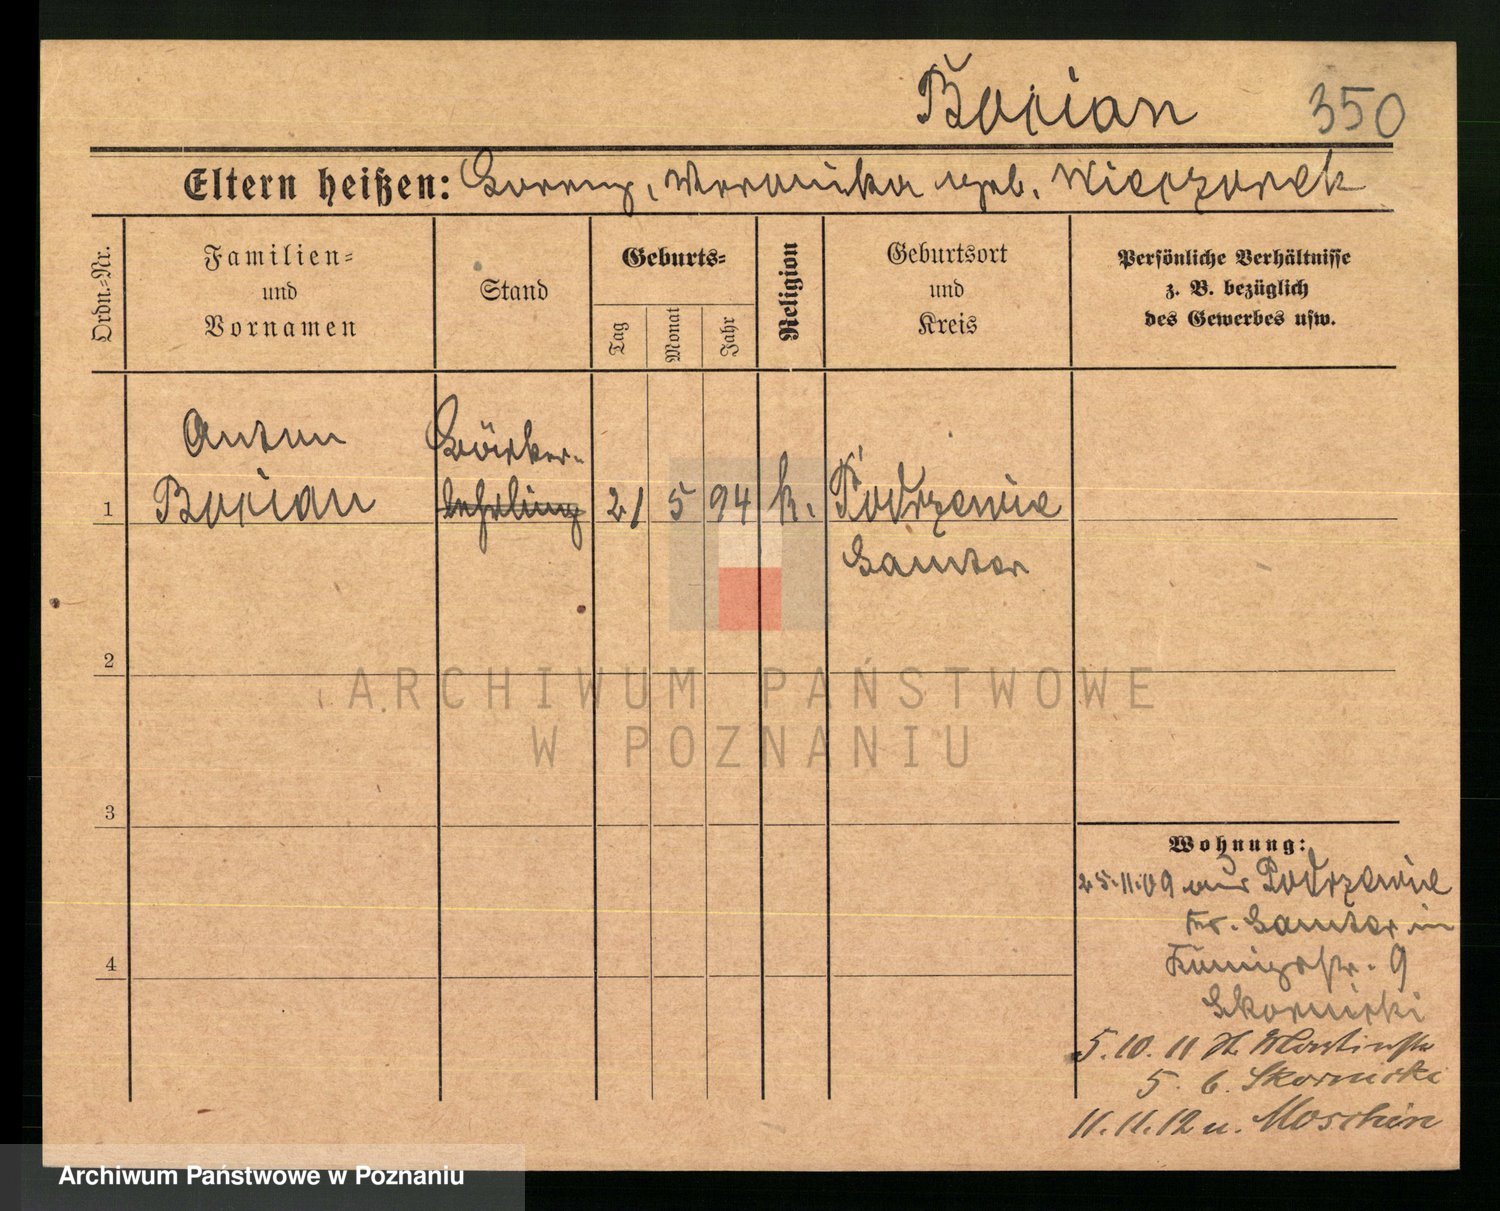 Bocian 350
Eltern heißen: Lorenz, Veronika geb. Wieczorek
Ordn.-Nr.
Familien-
und
Vornamen
Stand
Geburts-
Tag
Monat
Jahr
Religion
Geburtsort
und
Kreis
Persönliche Verhältnisse
z. B. bezüglich
des Gewerbes usw.
Anton
Bocian
Bäcker-
lehrling
1
21
5
94
k.
Podrzewie
Samter
2
3
4
Wohnung:
25.11.09 aus Podrzewie
Kr. Samter in
Königstr. 9
Skornicki
5.10.11 St. Martinstr
5. b. Skornicki
11.11.12 n. Moschin
ARCHIWUM PAŃSTWOWE
W POZNANIU
Archiwum Państwowe w Poznaniu